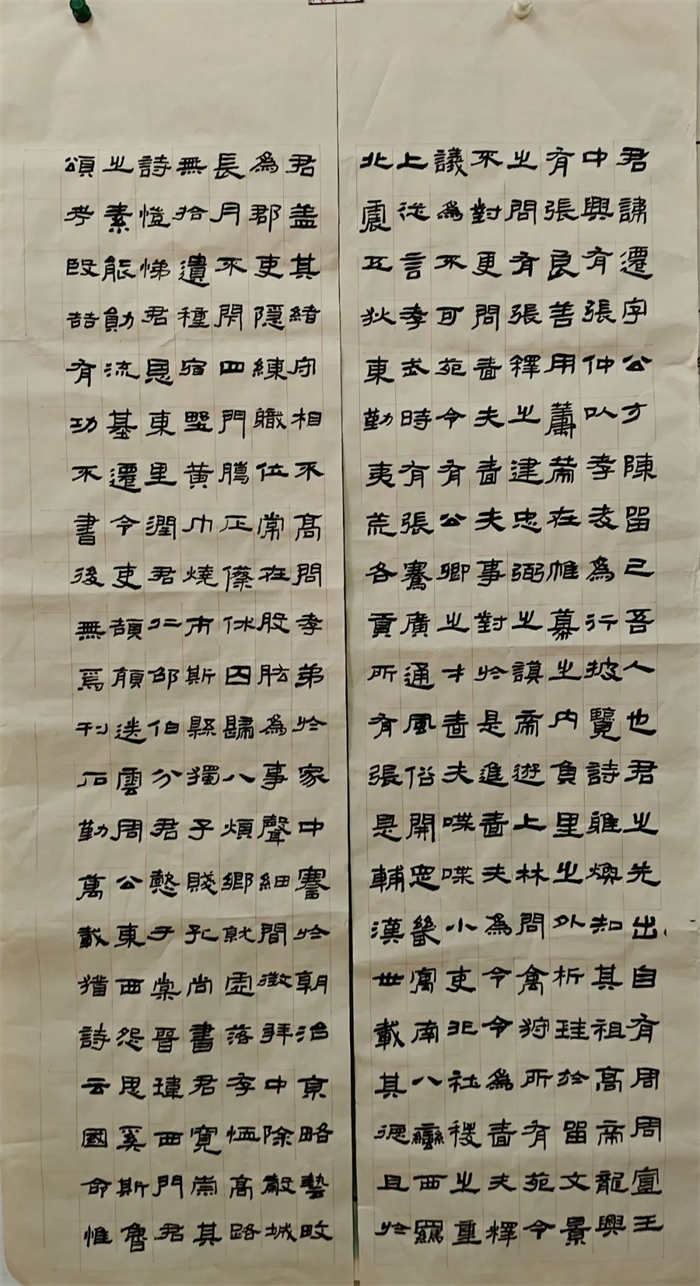 君諱遷字公方陳留己吾人也君之先出自有周周宣王
中興有張仲以孝友為行披覽詩雅煥知其祖高帝龍興
有張良善用籌策在帷幕之內負里之外析珪於留文景
之間有張釋之建忠弼之謨帝遊上林問禽狩所有苑令
不對更問嗇夫嗇夫事對於是進嗇夫為令令為嗇夫釋
議為不可苑令有公卿之才嗇夫喋喋小吏非社稷之重
上從言孝武時有張騫廣通風俗開定畿寓南八蠻西羈
北震五狄東勤夷荒各貢所有張是輔漢世載其德且於
君蓋其緒守相不高問孝弟於家中謇於朝治京略藝敃
為郡吏隱練職位常在股肱為事聲細聞徵拜中除穀城
長月不閉四門騰正傺休囚歸八煩鄉就虛落存恤高路
無拾遺種宿野黃巾燒市斯縣獨子賤孔尚書君寬崇其
詩愷悌君恩東里潤君仁邵伯分君懿于棠晉瑋西門君
之素能勛流基遷令吏頡頏送雲周公東西怨思奚斯魯
頌考殷喆有功不書後無焉刊石勤萬載猶詩云國命惟